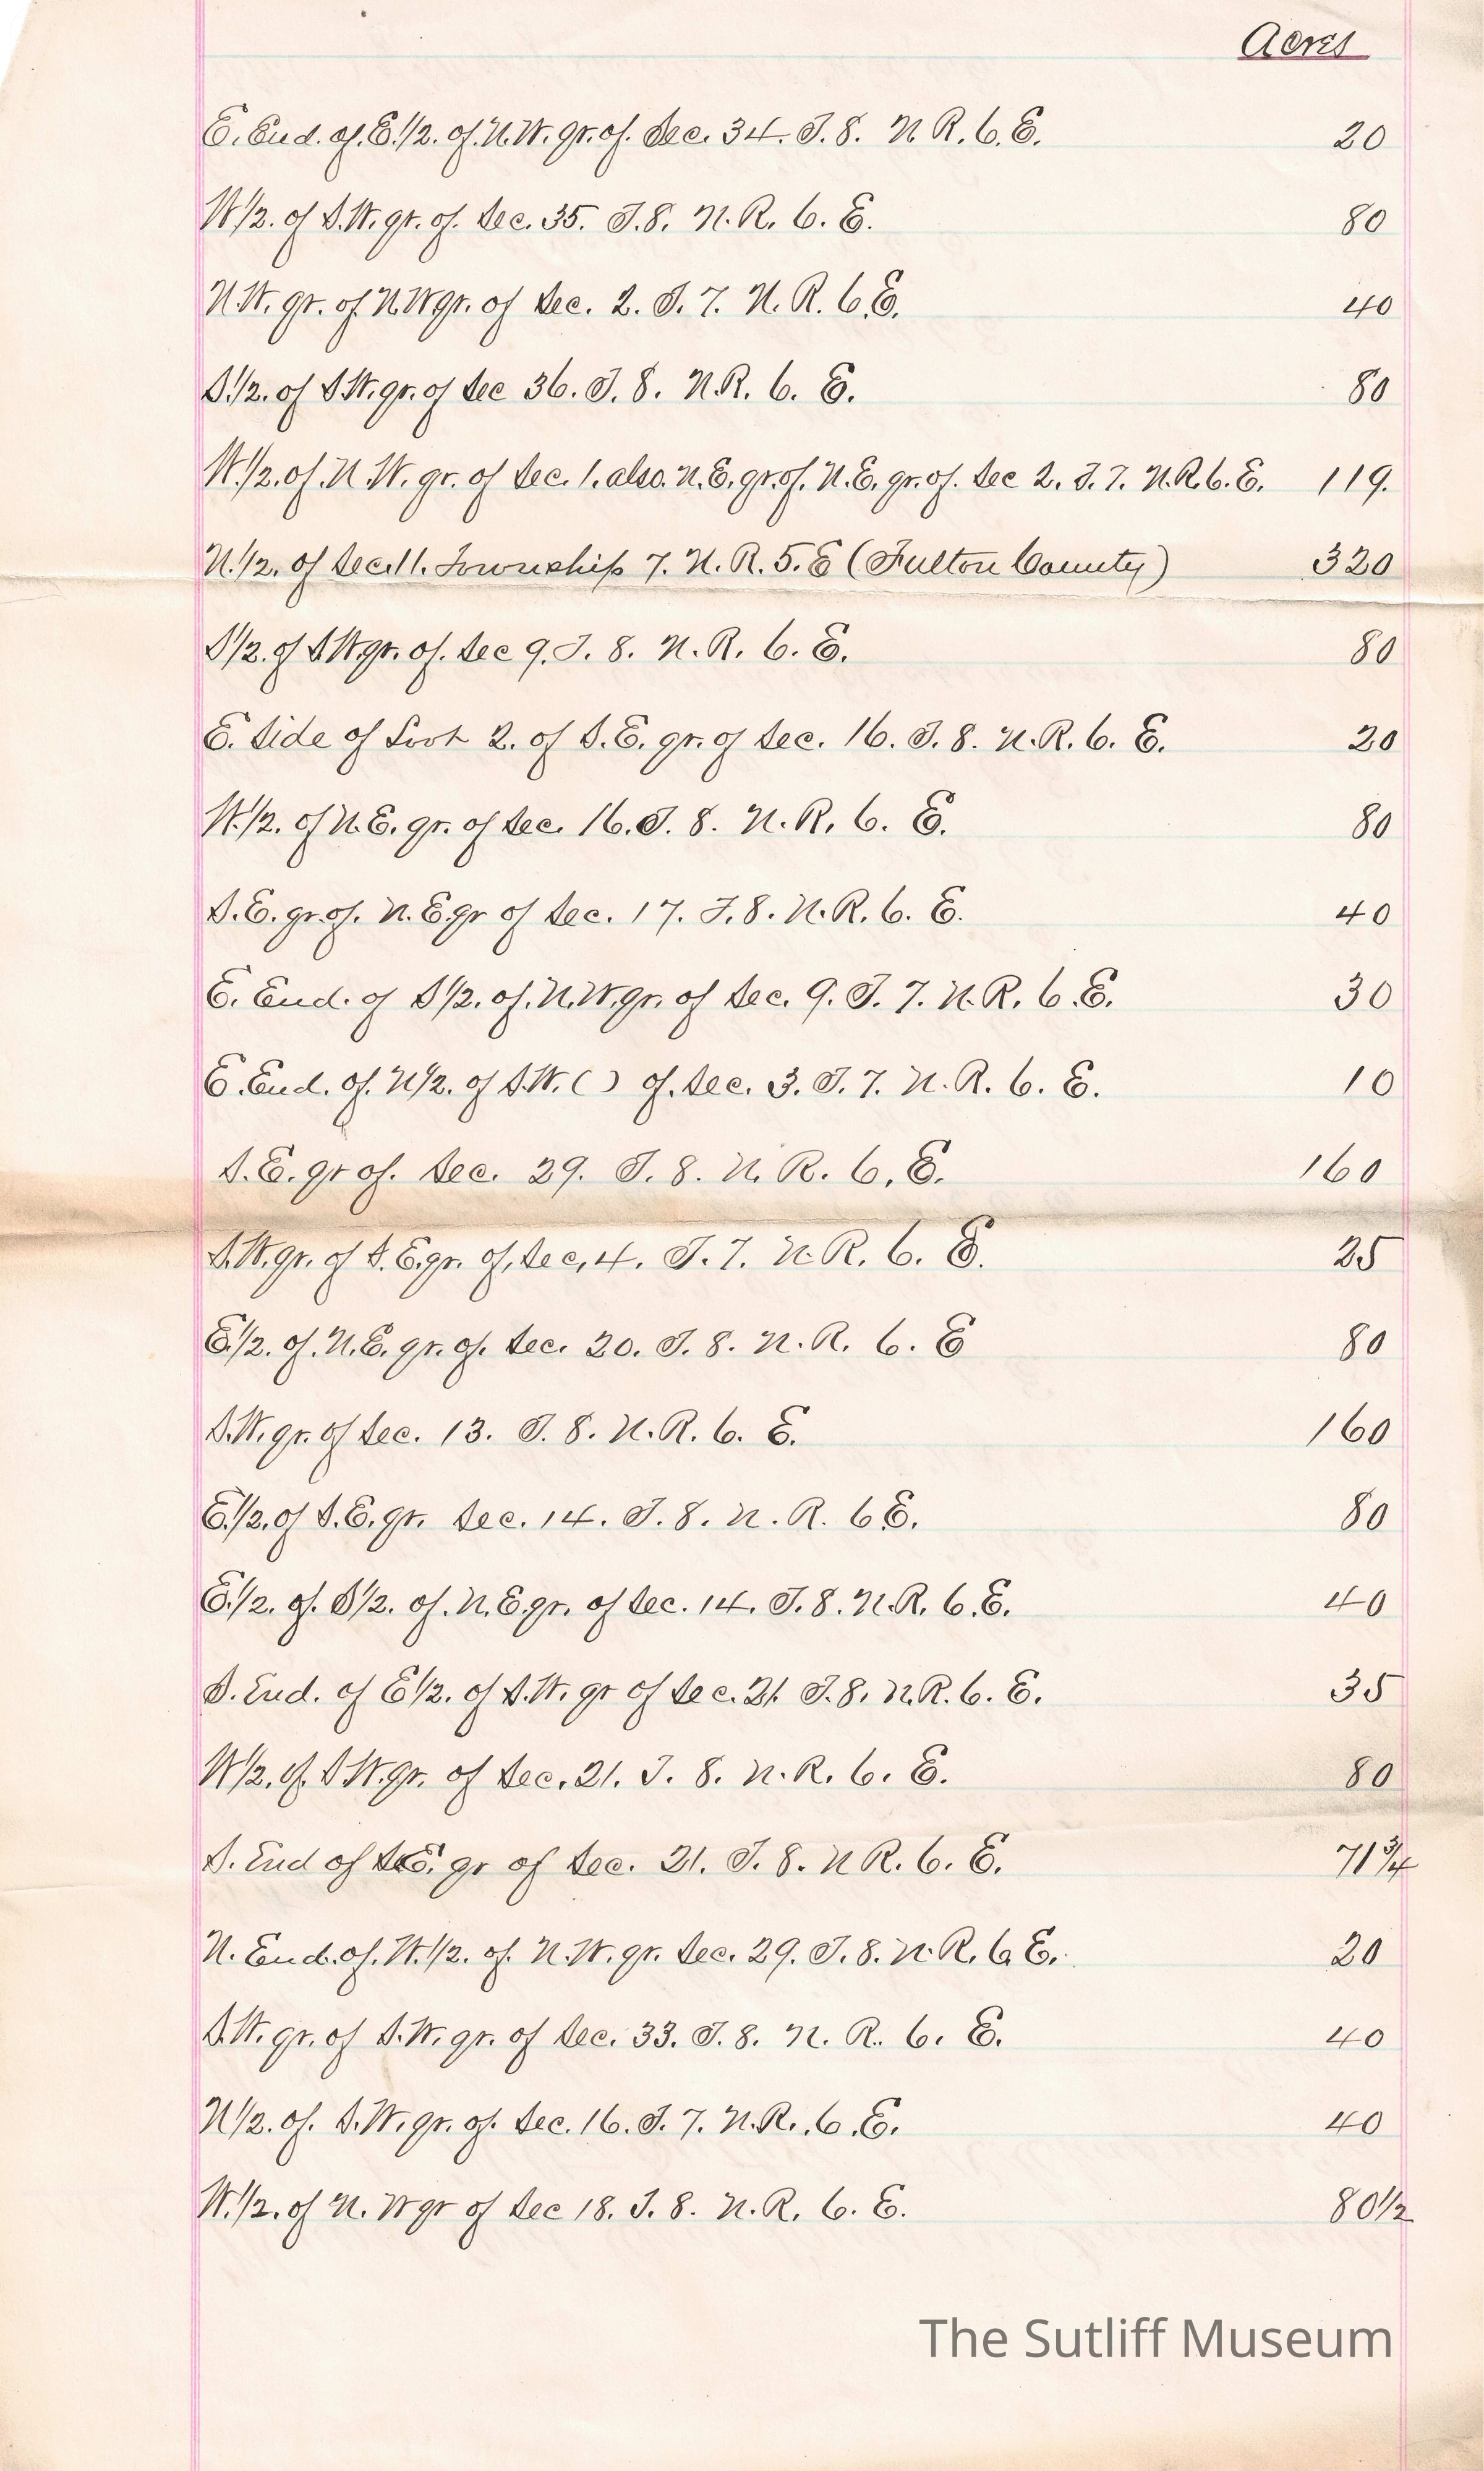 Acres
E. End. of. E. 1/2. of. N. W. qr. of. Sec. 34. T. 8. N R. 6. E. 20
W 1/2. of S. W. qr. of. Sec. 35. T. 8. N. R. 6. E. 80
N. W. qr. of N W qr. of Sec. 2. T. 7. N. R. 6. E. 40
S. 1/2. of S W. qr. of Sec 36. T. 8. N. R. 6. E. 80
W. 1/2. of. N. W. qr. of Sec. 1. also. N. E. qr. of. N. E. qr. of. Sec 2. T. 7. N. R. 6. E. 119.
N. 1/2. of Sec. 11. Township 7. N. R. 5. E (Fulton County) 320
S 1/2. of S W. qr. of. Sec 9. T. 8. N. R. 6. E. 80
E. Side of 2. of S. E. qr. of Sec. 16. T. 8. N. R. 6. E. 20
W. 1/2. of N. E. qr. of Sec. 16. T. 8. N. R. 6. E. 80
S. E. qr. of. N. E. qr of Sec. 17. T. 8. N. R. 6. E. 40
E. End. of S 1/2. of. N. W. qr. of Sec. 9. T. 7. N. R. 6. E. 30
E. End. of. N 1/2. of S. W. ( ) of. Sec. 3. T. 7. N. R. 6. E. 10
S. E. qr of. Sec. 29. T. 8. N. R. 6. E. 160
S. W. qr. of S. E. qr. of. Sec. 4. T. 7. N. R. 6. E. 25
E. 1/2. of. N. E. qr. of. Sec. 20. T. 8. N. R. 6. E 80
S. W. qr. of Sec. 13. T. 8. N. R. 6. E. 160
E. 1/2. of S. E. qr. Sec. 14. T. 8. N. R. 6 E. 80
E. 1/2. of. S 1/2. of. N. E. qr. of Sec. 14. T. 8. N. R. 6. E. 40
S. End. of E 1/2. of S. W. qr of Sec. 21. T. 8. N. R. 6. E. 35
W 1/2. of. S W. qr. of Sec. 21. T. 8. N. R. 6. E. 80
S. End of E. qr of Sec. 21. T. 8. N R. 6. E. 71 3/4
N. End. of. W. 1/2. of. N. W. qr. Sec. 29. T. 8. N. R. 6 E. 20
S. W. qr. of S. W. qr. of Sec. 33. T. 8. N. R. 6. E. 40
N 1/2. of. S. W. qr. of. Sec. 16. T. 7. N. R. 6. E. 40
W. 1/2. of N. W qr of Sec 18. T. 8. N. R. 6. E. 80 1/2
The Sutliff Museum